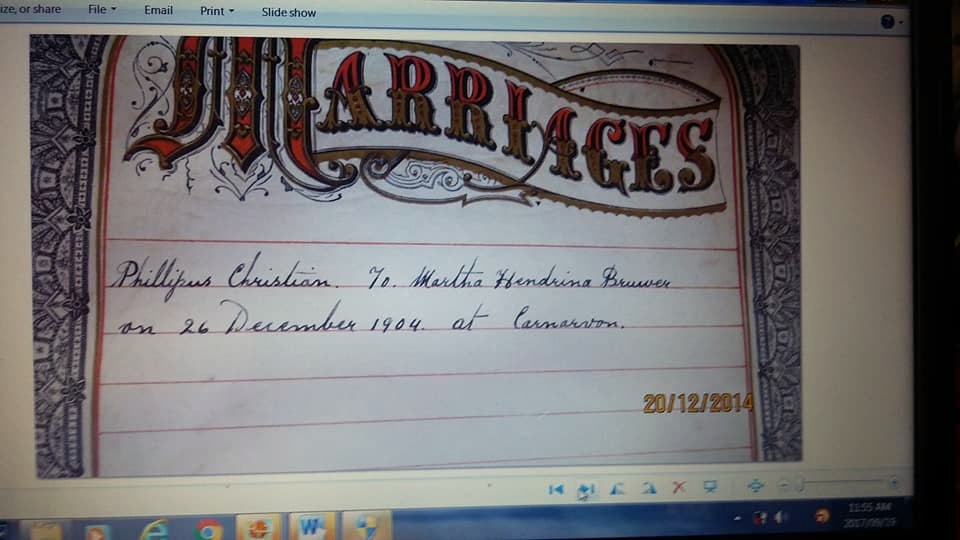 ize, or share File Email Print Slide show
MARRIAGES
Phillipus Christian. To. Martha Hendrina Bruwer
on 26 December 1904. at Carnarvon.
20/12/2014
11:55 AM
2017/09/19